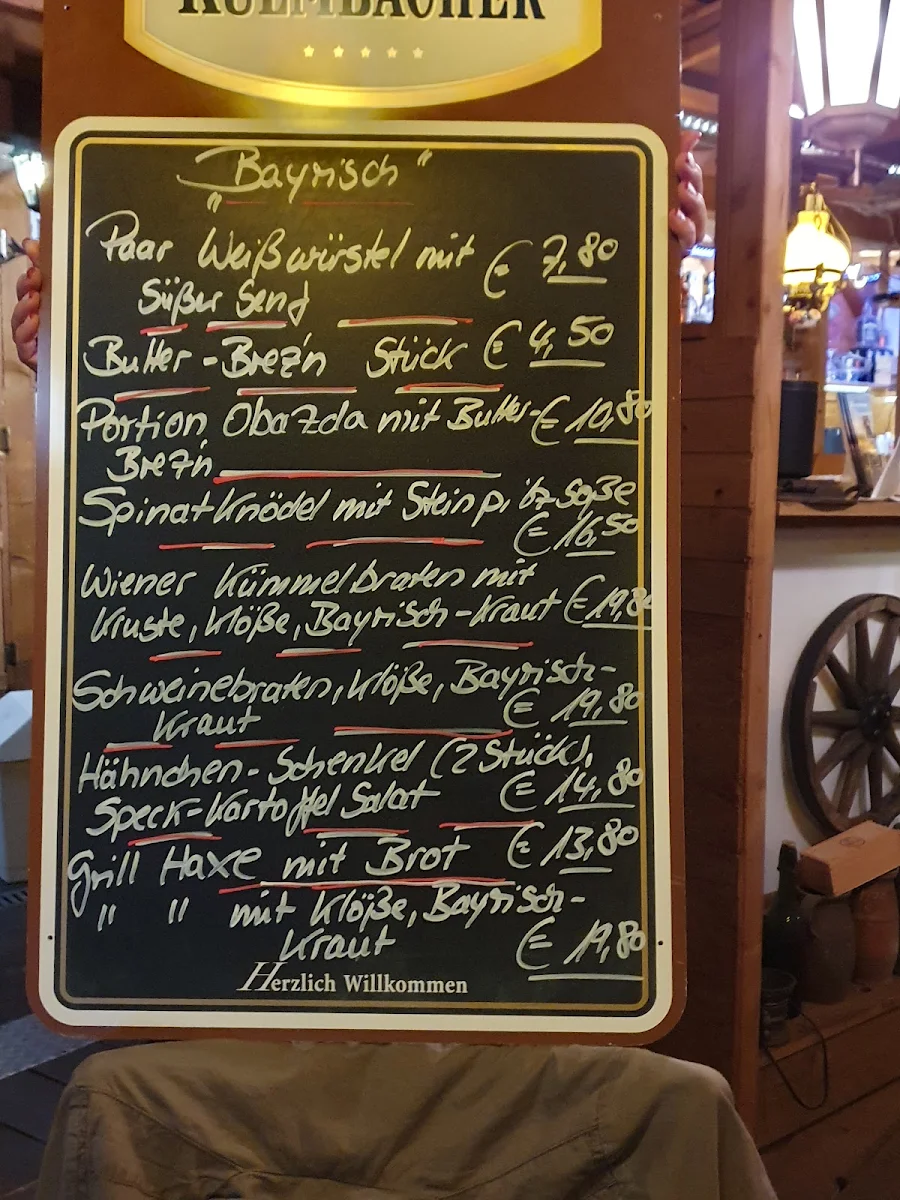 KULMBACHER
„Bayrisch"
Paar Weißwürstel mit € 7,80
Süßer Senf
Butter-Brez'n Stück € 4,50
Portion Obazda mit Butter- € 10,80
Brez'n
Spinat Knödel mit Steinpilz-Soße
€ 16,50
Wiener Kümmelbraten mit
Kruste, Klöße, Bayrisch-Kraut € 19,80
Schweinebraten, Klöße, Bayrisch-
Kraut € 19,80
Hähnchen-Schenkel (2 Stück),
Speck-Kartoffel Salat € 14,80
Grill Haxe mit Brot € 13,80
" " mit Klöße, Bayrisch-
Kraut € 19,80
Herzlich Willkommen